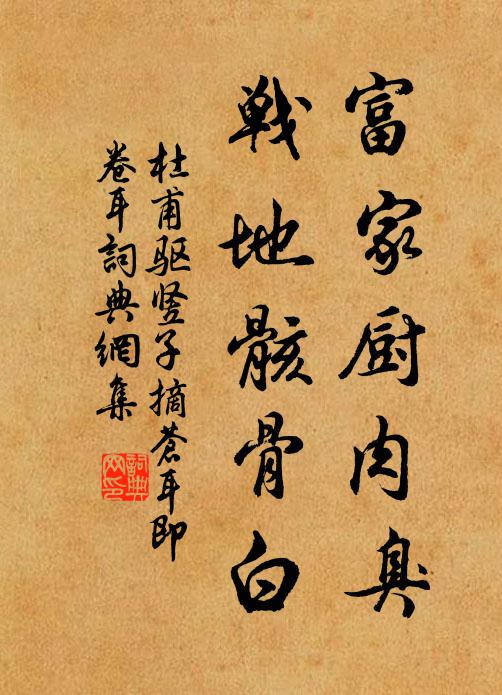 富家厨肉臭
戦地骸骨白
杜甫驱竖子摘苍耳即
卷耳词典網集
詞典網印